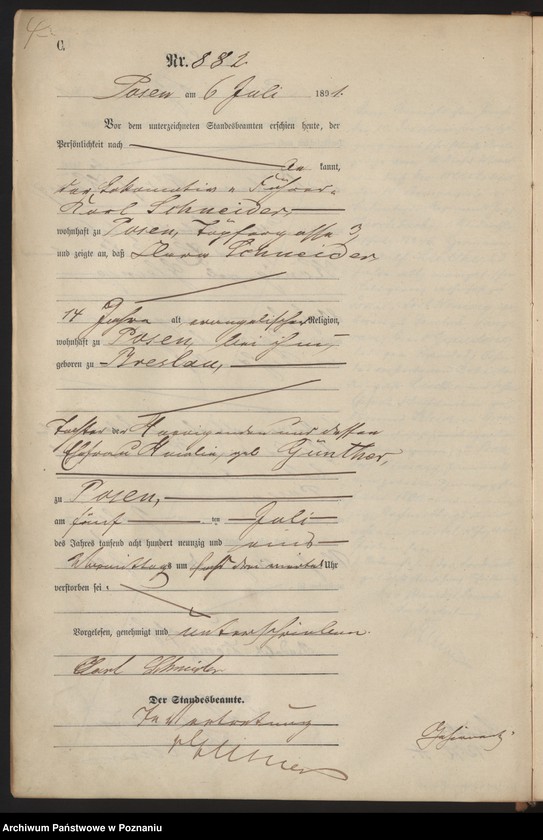 C.
Nr. 882.
Posen am 6 Juli 1891.
Vor dem unterzeichneten Standesbeamten erschien heute, der
Persönlichkeit nach
be kannt,
der Lokomotiv-Führer
Karl Schneider,
wohnhaft zu Posen, Töpfergasse 3,
und zeigte an, daß Clara Schneider
14 Jahre alt, evangelischer Religion,
wohnhaft zu Posen, bei ihm,
geboren zu Breslau,
Tochter des Anzeigenden und dessen
Ehefrau geb. Günther,
zu Posen,
am fünf ten Juli
des Jahres tausend acht hundert neunzig und eins
Vormittags um drei viertel Uhr
verstorben sei.
Vorgelesen, genehmigt und unterschrieben
Carl Schneider
Der Standesbeamte.
In Vertretung
Archiwum Państwowe w Poznaniu